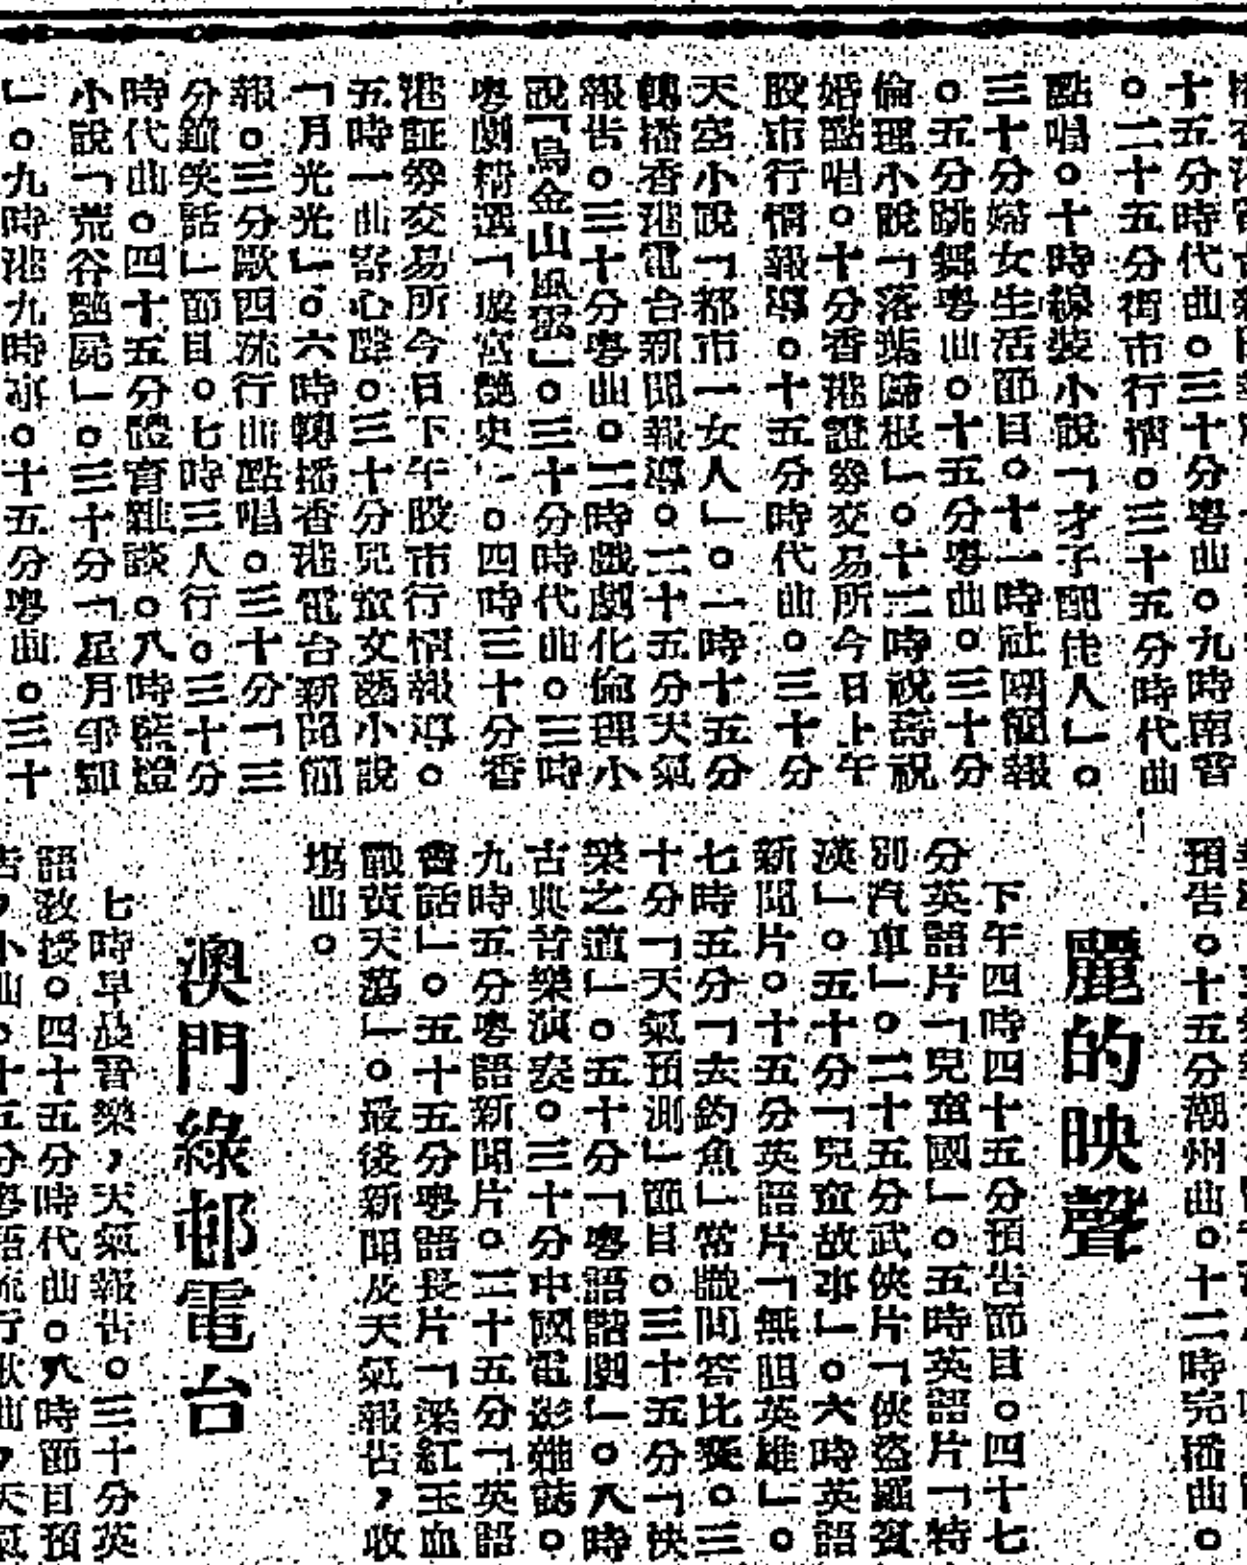 十五分時代曲。三十分粵曲。九時南音
。二十五分街市行情。三十五分時代曲
點唱。十時線裝小說「才子配佳人」。
三十分婦女生活節目。十一時社團簡報
。五分跳舞粵曲。十五分粵曲。三十分
倫理小說「落葉歸根」。十二時祝壽祝
婚點唱。十分香港證券交易所今日上午
股市行情報導。十五分時代曲。三十分
天空小說「都市一女人」。一時十五分
轉播香港電台新聞報導。二十五分天氣
報告。三十分粵曲。二時戲劇化倫理小
說「烏金山風雲」。三十分時代曲。三時
粵劇精選「璇宮艷史」。四時三十分香
港証券交易所今日下午股市行情報導。
五時一曲寄心聲。三十分兒童文藝小說
「月光光」。六時轉播香港電台新聞簡
報。三分歐西流行曲點唱。三十分「三
分鐘笑話」節目。七時三人行。三十分
時代曲。四十五分體育雜談。八時藍燈
小說「荒谷艷屍」。三十分「星月爭輝
」。九時港九時事。十五分粵曲。三十
預告。十五分潮州曲。十二時完播曲。
麗的映聲
下午四時四十五分預告節目。四十七
分英語片「兒童國」。五時英語片「特
別汽車」。二十五分武俠片「俠盜羅賓
漢」。五十分「兒童故事」。六時英語
新聞片。十五分英語片「無胆英雄」。
七時五分「去釣魚」常識問答比賽。三
十分「天氣預測」節目。三十五分「快
樂之道」。五十分「粵語諧劇」。八時
古典音樂演奏。三十分中國電影雜誌。
九時五分粵語新聞片。二十五分「英語
會話」。五十五分粵語長片「梁紅玉血
戰黃天蕩」。最後新聞及天氣報告，收
場曲。
澳門綠邨電台
七時早晨音樂，天氣報告。三十分英
語教授。四十五分時代曲。八時節目預
告，小曲。十五分粵語流行歌曲，天氣